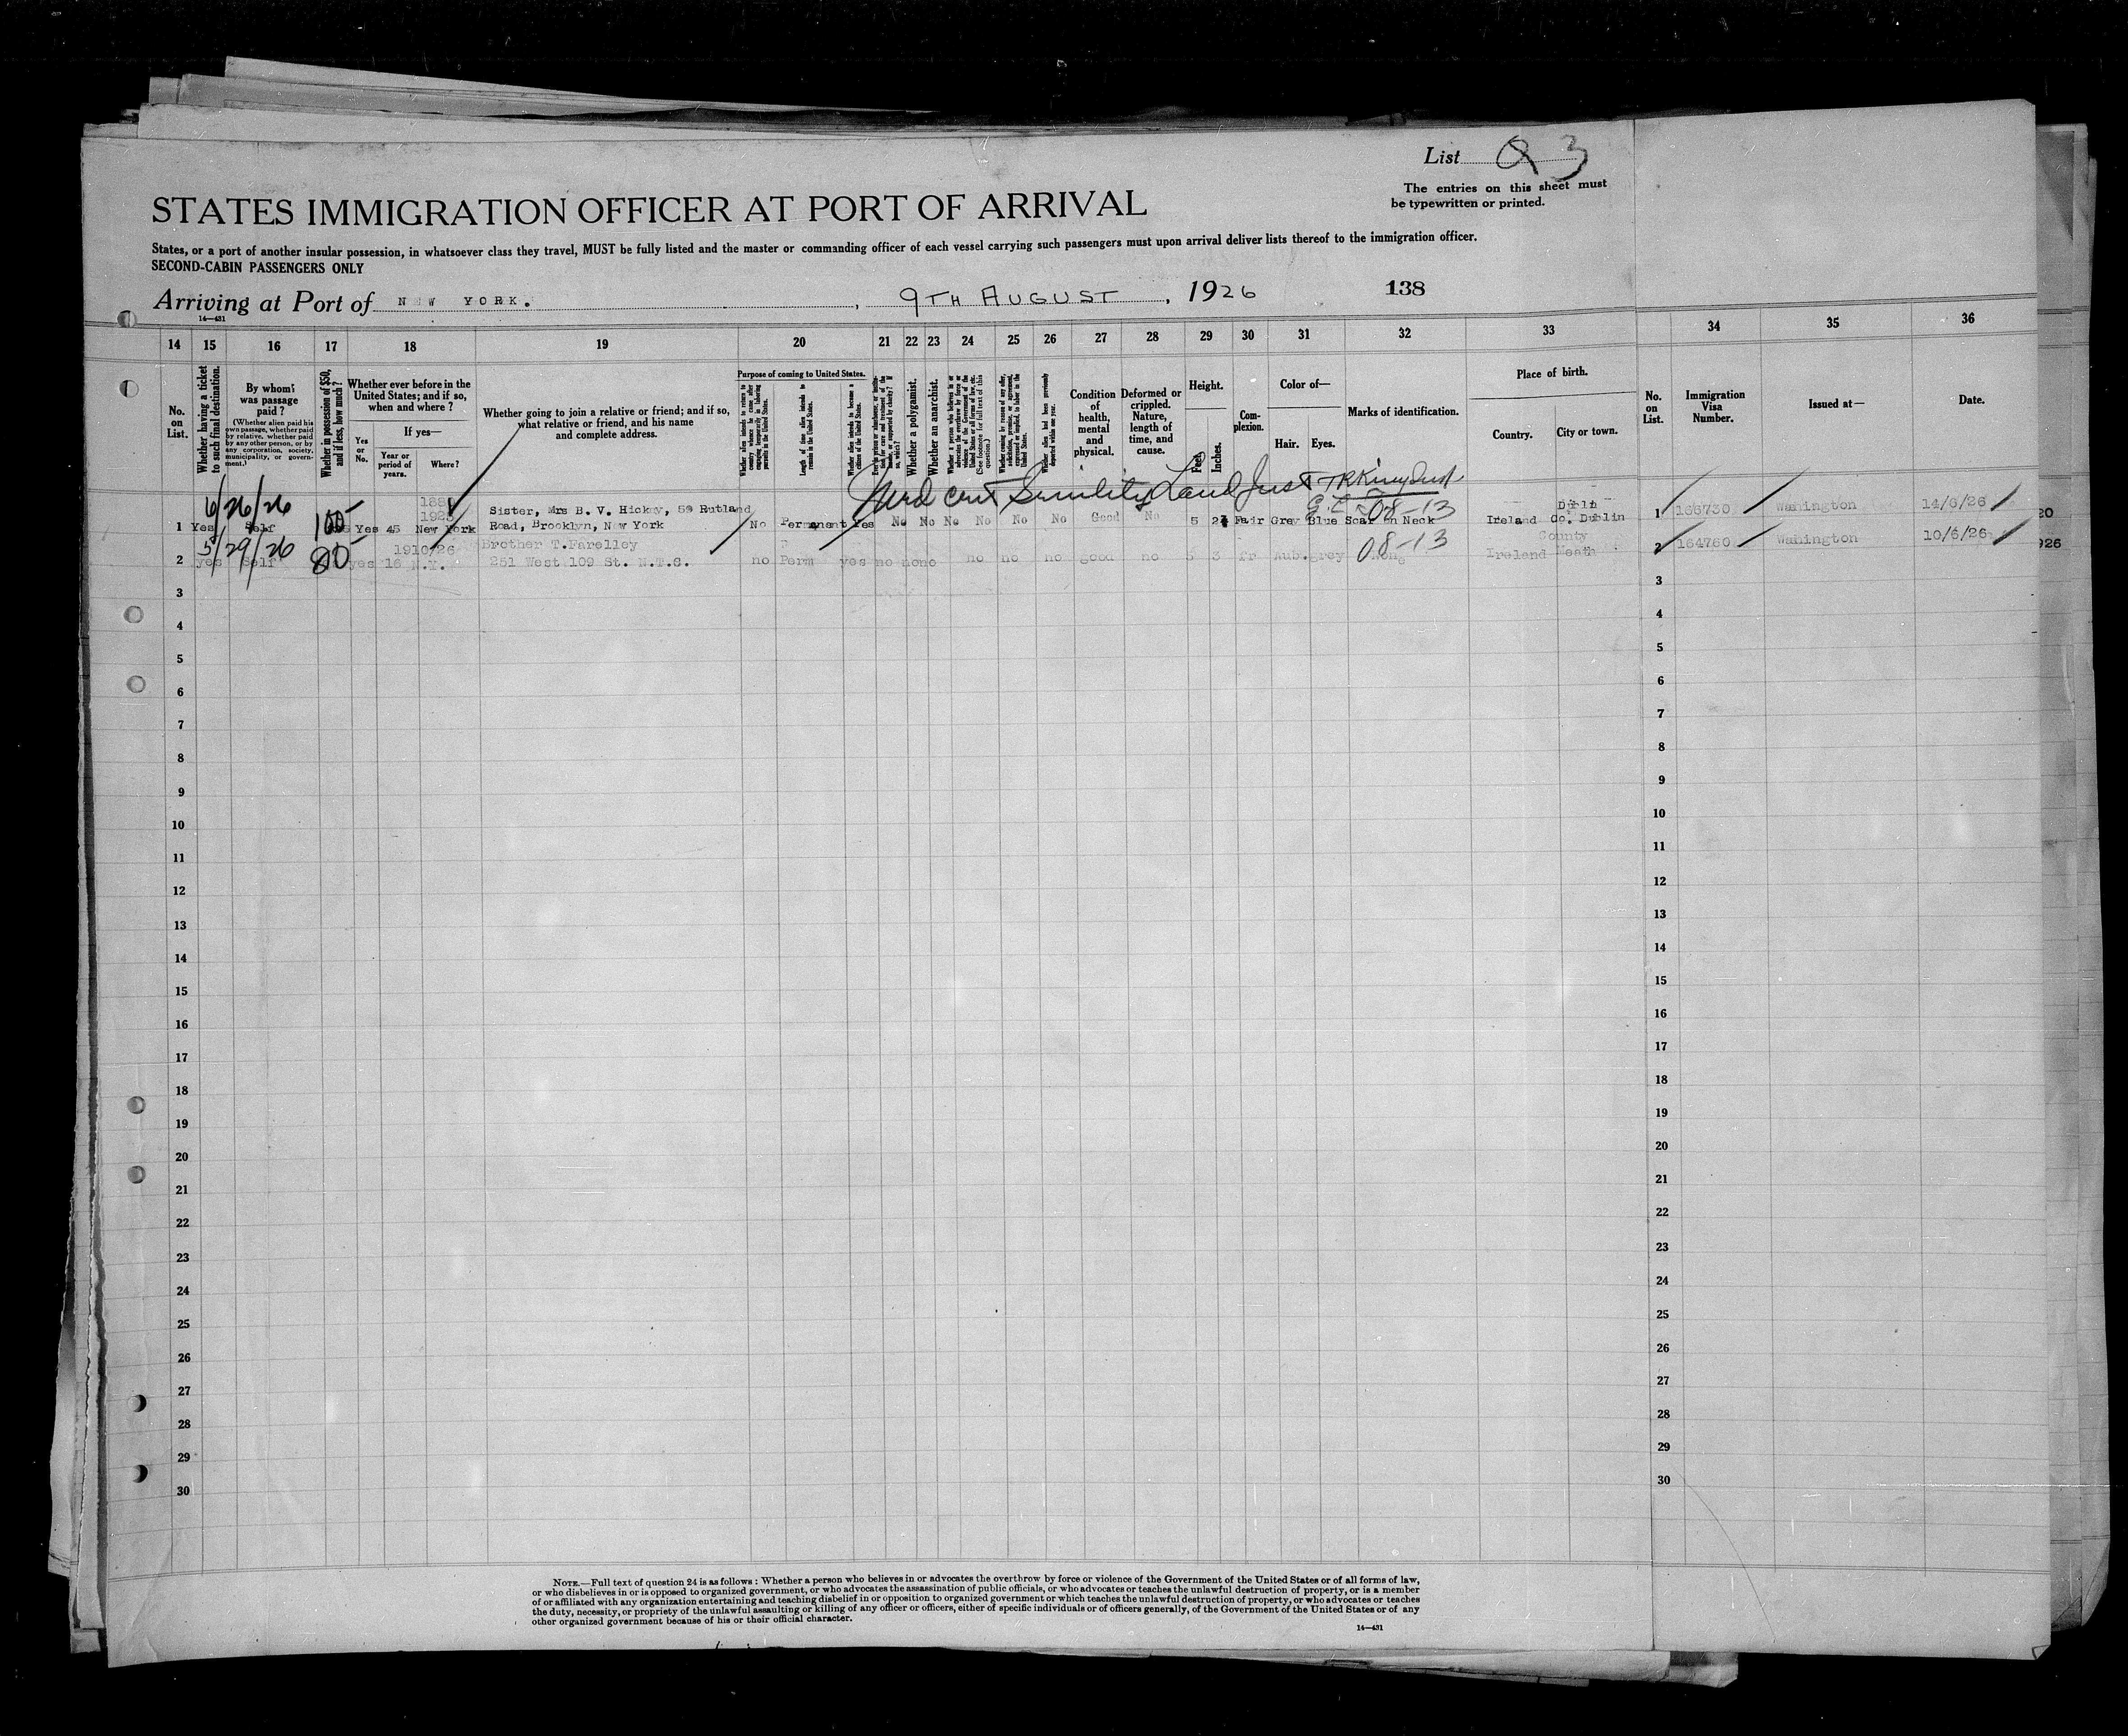 List Q 3
The entries on this sheet must
be typewritten or printed.
STATES IMMIGRATION OFFICER AT PORT OF ARRIVAL
States, or a port of another insular possession, in whatsoever class they travel, MUST be fully listed and the master or commanding officer of each vessel carrying such passengers must upon arrival deliver lists thereof to the immigration officer.
SECOND-CABIN PASSENGERS ONLY
Arriving at Port of NEW YORK. , 9TH AUGUST , 1926 138
14—431
14 15 16 17 18 19 20 21 22 23 24 25 26 27 28 29 30 31 32 33 34 35 36
No. on List.
Whether having a ticket to such final destination.
By whom was passage paid?
(Whether alien paid his own passage, whether paid by relative, whether paid by any other person, or by any corporation, society, municipality, or government.)
Whether in possession of $50, and if less, how much?
Whether ever before in the United States; and if so, when and where?
Yes or No.
If yes—
Year or period of years.
Where?
Whether going to join a relative or friend; and if so, what relative or friend, and his name and complete address.
Purpose of coming to United States.
Whether alien intends to return to country whence he came after engaging temporarily in laboring pursuits in the United States.
Length of time alien intends to remain in the United States.
Whether alien intends to become a citizen of the United States.
Whether a polygamist.
Whether an anarchist.
Condition of health, mental and physical.
Deformed or crippled. Nature, length of time, and cause.
Height.
Feet
Inches.
Complexion.
Color of—
Hair. Eyes.
Marks of identification.
Place of birth.
Country. City or town.
No. on List.
Immigration Visa Number.
Issued at—
Date.
6/26/26 100
Sister, Mrs B. V. Hickey, 59 Rutland
08-13
Dublin
1 Yes Self Yes 45 New York Road, Brooklyn, New York No Permanent Yes No No No No No No Good No 5 Fair Grey Blue Scar on Neck Ireland Co. Dublin 1 166730 Wahington 14/6/26 20
5/29/26 80 1910/26 Brother T.Farelley 08-13 County
2 yes Self yes 16 N.Y. 251 West 109 St. N.T.C. no Perm yes no nono no no no good no 5 3 fr Aub.grey None Ireland Meath 2 164760 Wahington 10/6/26 926
3 3
4 4
5 5
6 6
7 7
8 8
9 9
10 10
11 11
12 12
13 13
14 14
15 15
16 16
17 17
18 18
19 19
20 20
21 21
22 22
23 23
24 24
25 25
26 26
27 27
28 28
29 29
30 30
NOTE.—Full text of question 24 is as follows: Whether a person who believes in or advocates the overthrow by force or violence of the Government of the United States or of all forms of law,
or who disbelieves in or is opposed to organized government, or who advocates the assassination of public officials, or who advocates or teaches the unlawful destruction of property, or is a member
of or affiliated with any organization entertaining and teaching disbelief in or opposition to organized government or which teaches the unlawful destruction of property, or who advocates or teaches
the duty, necessity, or propriety of the unlawful assaulting or killing of any officer or officers, either of specific individuals or of officers generally, of the Government of the United States or of any
other organized government because of his or their official character.
14—431